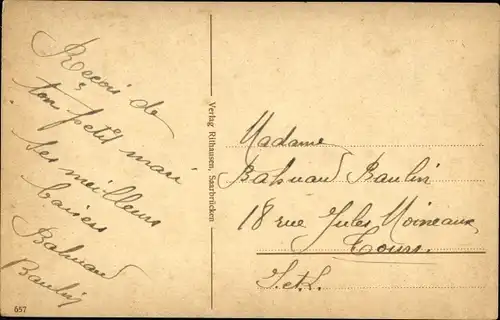 Reçois de
ton petit mari
ses meilleurs
baisers
Bahuaud
Baulin
Verlag Rilhausen, Saarbrücken
Madame
Bahuaud Baulin
18 rue Jules Moineaux
Tours.
I. et L.
657